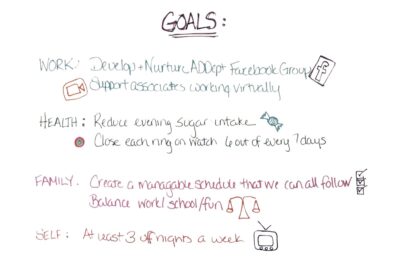 GOALS:
WORK: Develop + Nurture ADDept Facebook Group
Support associates working virtually
HEALTH: Reduce evening sugar intake
Close each ring on watch 6 out of every 7 days
FAMILY: Create a managable schedule that we can all follow
Balance work/school/fun
SELF: At least 3 off nights a week